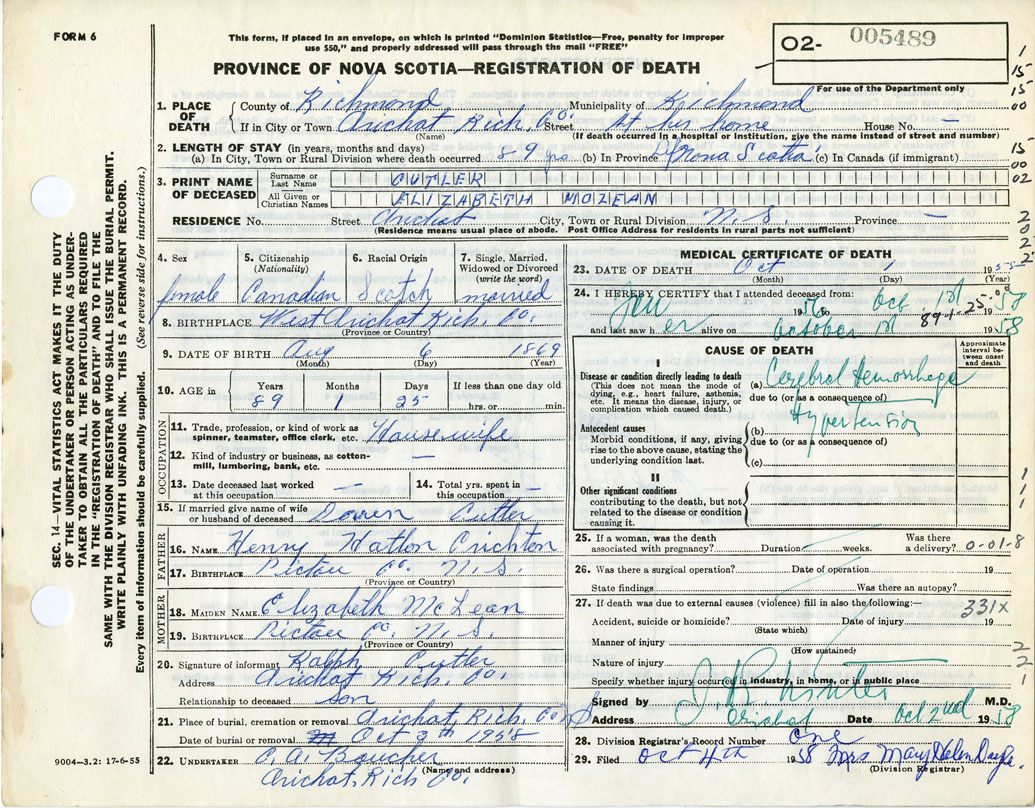 FORM 6
This form, if placed in an envelope, on which is printed "Dominion Statistics—Free, penalty for improper
use $50," and properly addressed will pass through the mail "FREE"
O2- 005489
PROVINCE OF NOVA SCOTIA—REGISTRATION OF DEATH
For use of the Department only
1. PLACE OF DEATH
County of Richmond Municipality of Richmond
If in City or Town Arichat Rich. Co. Street At her home House No. —
(Name) (If death occurred in a hospital or institution, give the name instead of street and number)
2. LENGTH OF STAY (in years, months and days)
(a) In City, Town or Rural Division where death occurred 89 yrs (b) In Province Nova Scotia (c) In Canada (if immigrant)
3. PRINT NAME OF DECEASED
Surname or Last Name CUTLER
All Given or Christian Names ELIZABETH MCLEAN
RESIDENCE No. Street Arichat City, Town or Rural Division N.S. Province —
(Residence means usual place of abode. Post Office Address for residents in rural parts not sufficient)
4. Sex
female
5. Citizenship
(Nationality)
Canadian
6. Racial Origin
Scotch
7. Single, Married,
Widowed or Divorced
(write the word)
married
8. BIRTHPLACE West Arichat Rich. Co.
(Province or Country)
9. DATE OF BIRTH Aug 6 1869
(Month) (Day) (Year)
10. AGE in
Years Months Days If less than one day old
89 1 25 hrs. or min.
OCCUPATION
11. Trade, profession, or kind of work as
spinner, teamster, office clerk, etc. Housewife
12. Kind of industry or business, as cotton-
mill, lumbering, bank, etc. —
13. Date deceased last worked
at this occupation —
14. Total yrs. spent in
this occupation —
15. If married give name of wife
or husband of deceased Cutler
FATHER
16. NAME Henry Hatton Crichton
17. BIRTHPLACE Pictou Co. N.S.
(Province or Country)
MOTHER
18. MAIDEN NAME Elizabeth McLean
19. BIRTHPLACE Pictou Co. N.S.
(Province or Country)
20. Signature of informant Ralph Cutler
Address Arichat Rich. Co.
Relationship to deceased son
21. Place of burial, cremation or removal Arichat, Rich. Co. N S
Date of burial or removal Oct 3th 1958
22. UNDERTAKER A. Boucher
(Name and address)
Arichat, Rich Co.
MEDICAL CERTIFICATE OF DEATH
23. DATE OF DEATH Oct 1 195
(Month) (Day) (Year)
24. I HEREBY CERTIFY that I attended deceased from:
Jan 1956 to Oct 1st 1958
and last saw h er alive on October 1st 1958
89-1-25
CAUSE OF DEATH
Approximate
interval be-
tween onset
and death
Disease or condition directly leading to death
(This does not mean the mode of
dying, e.g., heart failure, asthenia,
etc. It means the disease, injury, or
complication which caused death.)
(a) Cerebral Hemorrhage
due to (or as a consequence of)
Hypertension
Antecedent causes
Morbid conditions, if any, giving
rise to the above cause, stating the
underlying condition last.
(b)
due to (or as a consequence of)
(c)
II
Other significant conditions
contributing to the death, but not
related to the disease or condition
causing it.
25. If a woman, was the death
associated with pregnancy? Duration weeks. Was there
a delivery? 0-01-8
26. Was there a surgical operation? Date of operation 19
State findings Was there an autopsy?
27. If death was due to external causes (violence) fill in also the following:— 331X
Accident, suicide or homicide? Date of injury 19
(State which)
Manner of injury
(How sustained)
Nature of injury
Specify whether injury occurred in industry, in home, or in public place
Signed by M.D.
Address Arichat Date Oct 2nd 1958
28. Division Registrar's Record Number One
29. Filed Oct 4th 1958 Mrs Mary Helen
(Division Registrar)
9004—3.2: 17-6-55
SEC. 14—VITAL STATISTICS ACT MAKES IT THE DUTY
OF THE UNDERTAKER OR PERSON ACTING AS UNDER-
TAKER TO OBTAIN ALL THE PARTICULARS REQUIRED
IN THE "REGISTRATION OF DEATH" AND TO FILE THE
SAME WITH THE DIVISION REGISTRAR WHO SHALL ISSUE THE BURIAL PERMIT.
WRITE PLAINLY WITH UNFADING INK. THIS IS A PERMANENT RECORD.
Every item of information should be carefully supplied. (See reverse side for instructions.)
1
15
15
00
15
00
02
2
0
2
2
1
1
1
2
2
1